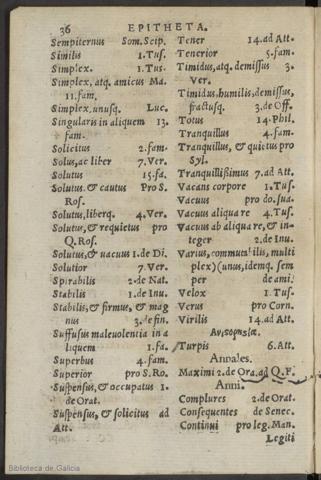 36 EPITHETA.
Sempiternus Som. Scip.
Similis 1. Tus.
Simplex. 1. Tus.
Simplex, atq. amicus Ma.
11. fam.
Simplex, unusq. Luc.
Singularis in aliquem 13.
fam.
Solicitus 2. fam.
Solus, ac liber 7. Ver.
Solutus 15. fa.
Solutus. & cautus Pro S.
Ros.
Solutus, liberq. 4. Ver.
Solutus, & requietus pro
Q. Ros.
Solutus, & uacuus 1. de Di.
Solutior 7. Ver.
Spirabilis 2. de Nat.
Stabilis 1. de Inu.
Stabilis, & firmus, & mag
nus 3. de fin.
Suffusus maleuolentia in a
liquem 1. fa.
Superbus 4. fam.
Superior pro S. Ro.
Suspensus, & occupatus 1.
de Orat.
Suspensus, & solicitus ad
Att.
Tener 14. ad Att.
Tenerior 5. fam.
Timidus, atq. demissus 3.
Ver.
Timidus, humilis, demissus,
fractusq. 3. de Off.
Totus 14. Phil.
Tranquillus 4. fam.
Tranquillus, & quietus pro
Syl.
Tranquillissimus 7. ad Att.
Vacans corpore 1. Tus.
Vacuus pro do. sua.
Vacuus aliqua re 4. Tus.
Vacuus ab aliqua re, & in-
teger 2. de Inu.
Varius, commutabilis, multi
plex) (unus, idemq. sem
per de ami.
Velox 1. Tus.
Verus pro Corn.
Virilis 14. ad Att.
Turpis 6. Att.
Annales.
Maximi 2. de Ora. ad Q. F.
Anni.
Complures 2. de Orat.
Consequentes de Senec.
Continui pro leg. Man.
Legiti
Biblioteca de Galicia